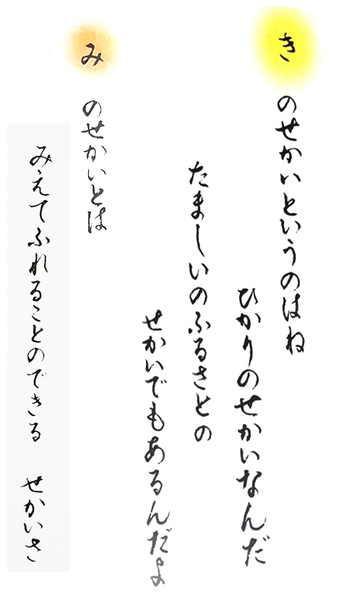 きのせかいというのはね
ひかりのせかいなんだ
たましいのふるさとの
せかいでもあるんだよ
みのせかいとは
みえてふれることのできる せかいさ